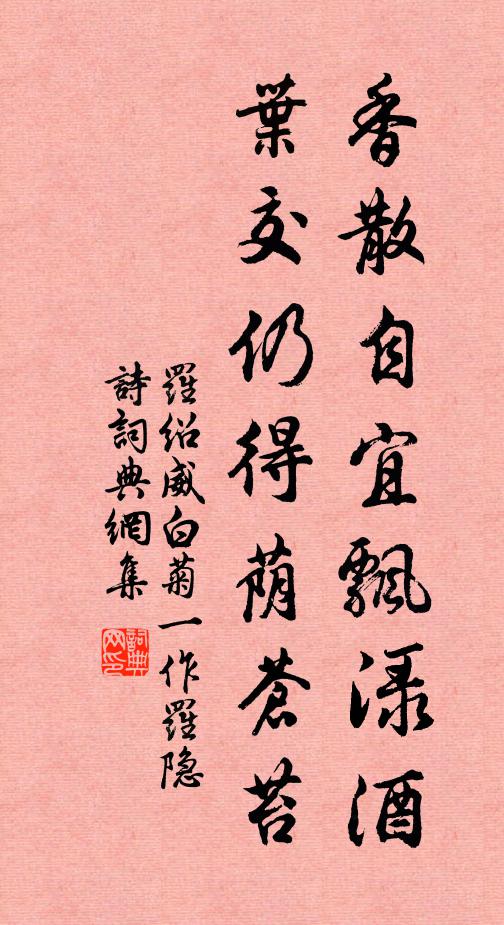 香散自宜飄渌酒
葉交仍得蔭蒼苔
羅紹威白菊一作羅隐
詩詞典網集
詞典网印